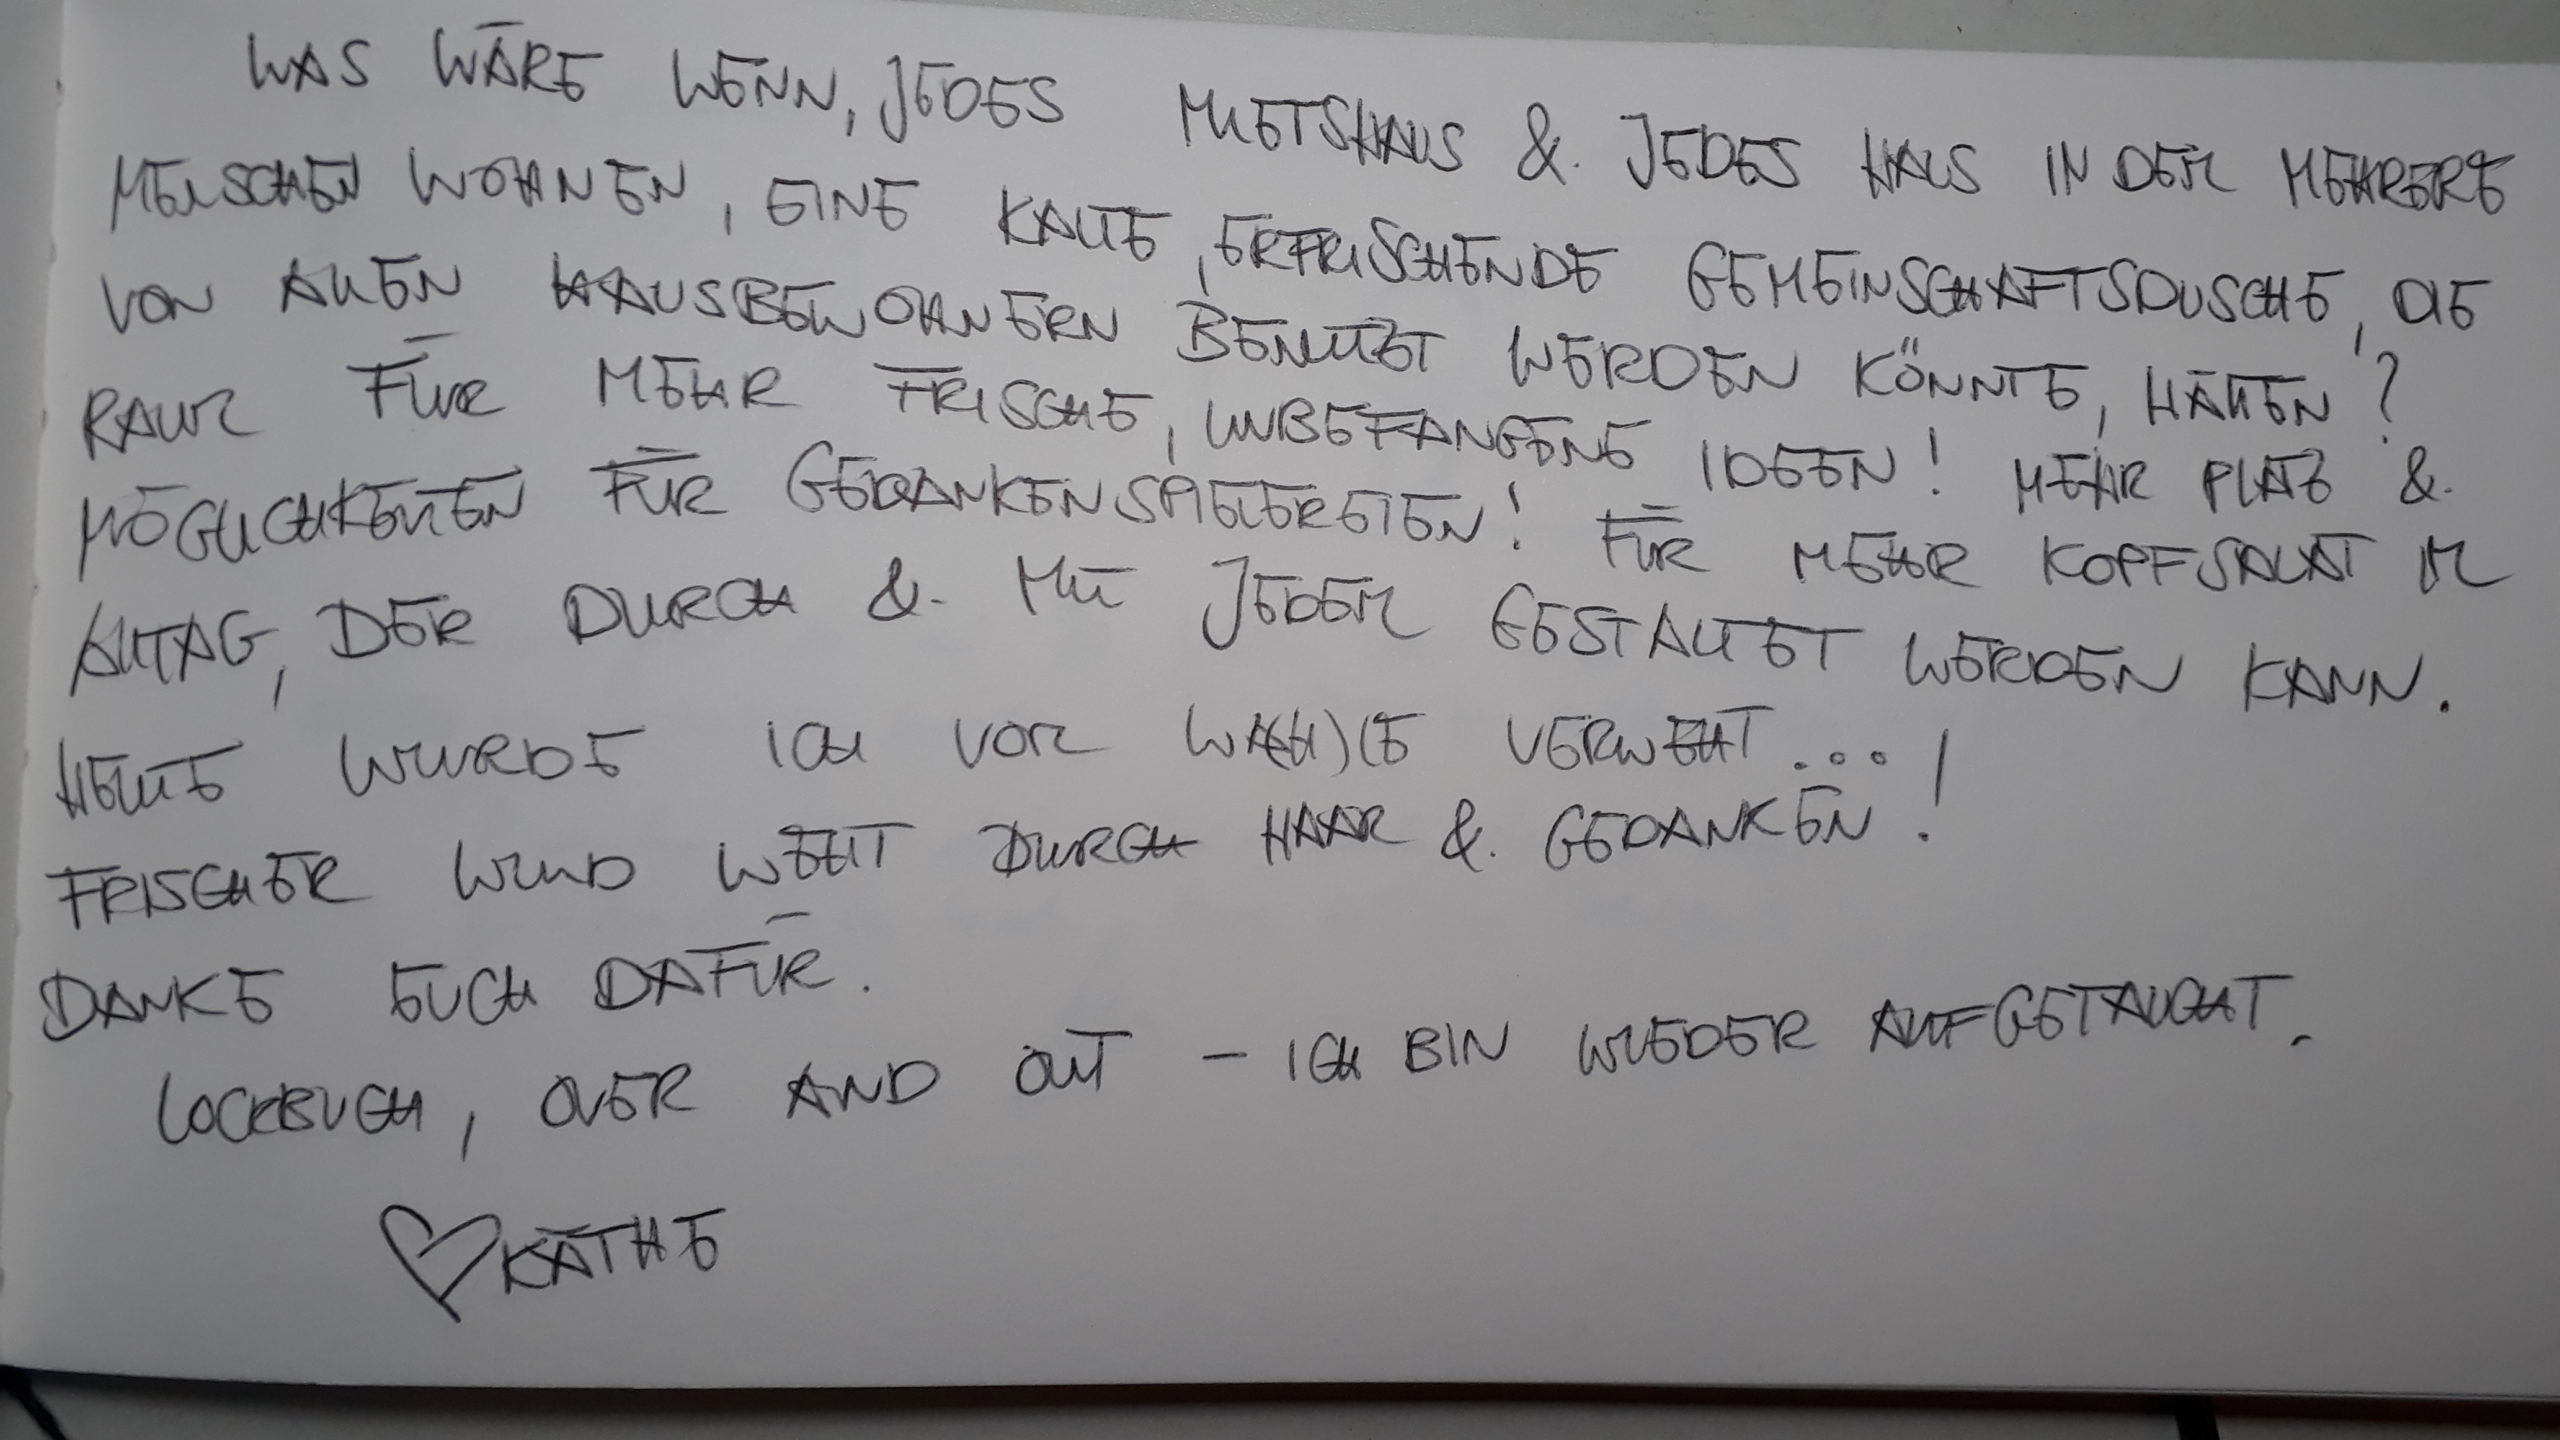 WAS WÄRE WENN, JEDES MIETSHAUS & JEDES HAUS IN DEM MEHRERE
MENSCHEN WOHNEN, EINE KALTE, ERFRISCHENDE GEMEINSCHAFTSDUSCHE, DIE
VON ALLEN HAUSBEWOHNERN BENUTZT WERDEN KÖNNTE, HÄTTEN?
RAUM FÜR MEHR FRISCHE, UNBEFANGENE IDEEN! MEHR PLATZ &
MÖGLICHKEITEN FÜR GEDANKENSPIELEREIEN! FÜR MEHR KOPFSALAT IM
ALLTAG, DER DURCH & MIT JEDEM GESTALTET WERDEN KANN.
HEUTE WURDE ICH VOM WA(H)LE VERWEHT...!
FRISCHER WIND WEHT DURCH HAAR & GEDANKEN!
DANKE EUCH DAFÜR.
LOCKBUCH, OVER AND OUT – ICH BIN WIEDER AUFGETAUCHT.
♡KÄTHE